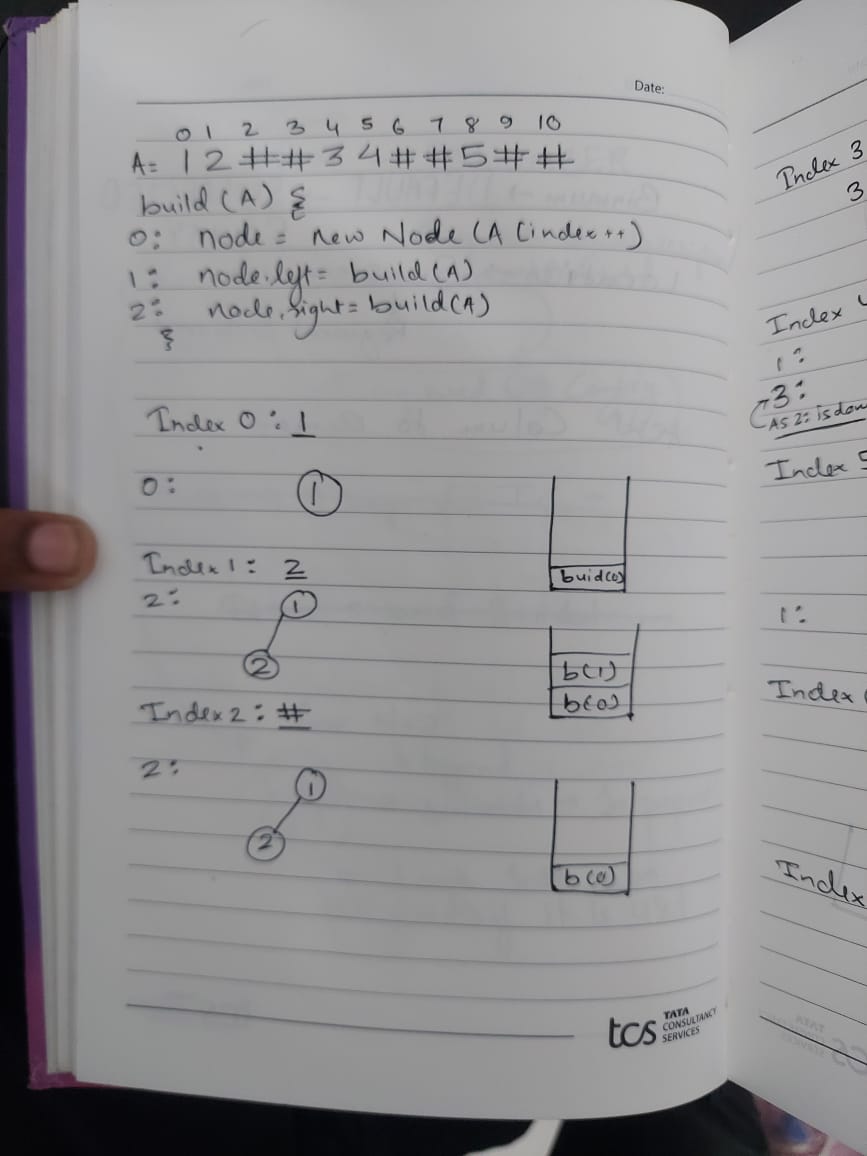 Date:
0 1 2 3 4 5 6 7 8 9 10
A= 1 2 # # 3 4 # # 5 # #
build (A) {
0: node = new Node (A [index++)
1: node.left = build (A)
2: node.right = build (A)
}
Index 0 : 1
0: 1
buid(0)
Index 1 : 2
2: 1
2
b(1)
b(0)
Index 2 : #
2: 1
2
b(0)
tcs TATA
CONSULTANCY
SERVICES
Index 3
3
Index
1:
3:
As 2: is
Index 5
1:
Index
Index